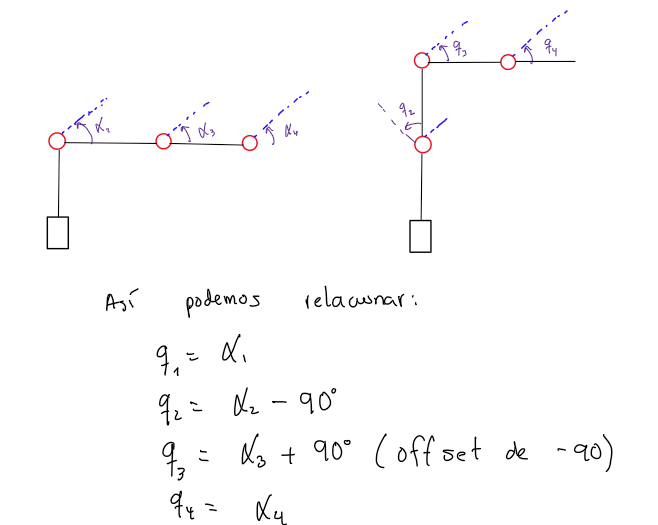 α₂ α₃ α₄
q₃ q₄
q₂
Así podemos relacionar:
q₁ = α₁
q₂ = α₂ - 90°
q₃ = α₃ + 90° (offset de -90)
q₄ = α₄